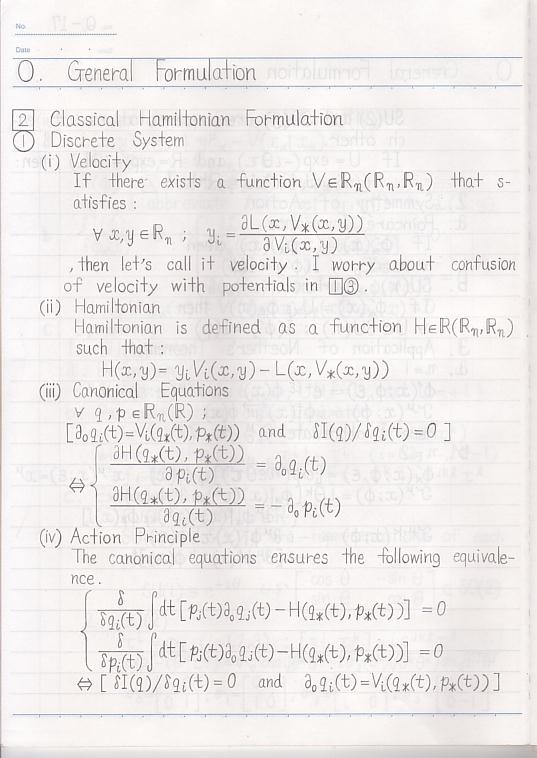 No. 0-17
Date . .
0. General Formulation
2 Classical Hamiltonian Formulation
① Discrete System
(i) Velocity
If there exists a function V∈ℝₙ(ℝₙ,ℝₙ) that s-
atisfies :
∀ x,y∈ℝₙ ; yᵢ = ∂L(x,V*(x,y)) / ∂Vᵢ(x,y)
, then let's call it velocity. I worry about confusion
of velocity with potentials in 1③.
(ii) Hamiltonian
Hamiltonian is defined as a function H∈ℝ(ℝₙ,ℝₙ)
such that :
H(x,y) = yᵢVᵢ(x,y) − L(x,V*(x,y))
(iii) Canonical Equations
∀ q,p∈ℝₙ(ℝ) ;
[∂₀qᵢ(t)=Vᵢ(q*(t),p*(t)) and δI(q)/δqᵢ(t)=0 ]
⇔ { ∂H(q*(t),p*(t)) / ∂pᵢ(t) = ∂₀qᵢ(t)
∂H(q*(t),p*(t)) / ∂qᵢ(t) = −∂₀pᵢ(t)
(iv) Action Principle
The canonical equations ensures the following equivale-
nce.
{ δ/δqᵢ(t) ∫dt[pⱼ(t)∂₀qⱼ(t)−H(q*(t),p*(t))] = 0
δ/δpᵢ(t) ∫dt[pⱼ(t)∂₀qⱼ(t)−H(q*(t),p*(t))] = 0
⇔ [ δI(q)/δqᵢ(t)=0 and ∂₀qᵢ(t)=Vᵢ(q*(t),p*(t)) ]